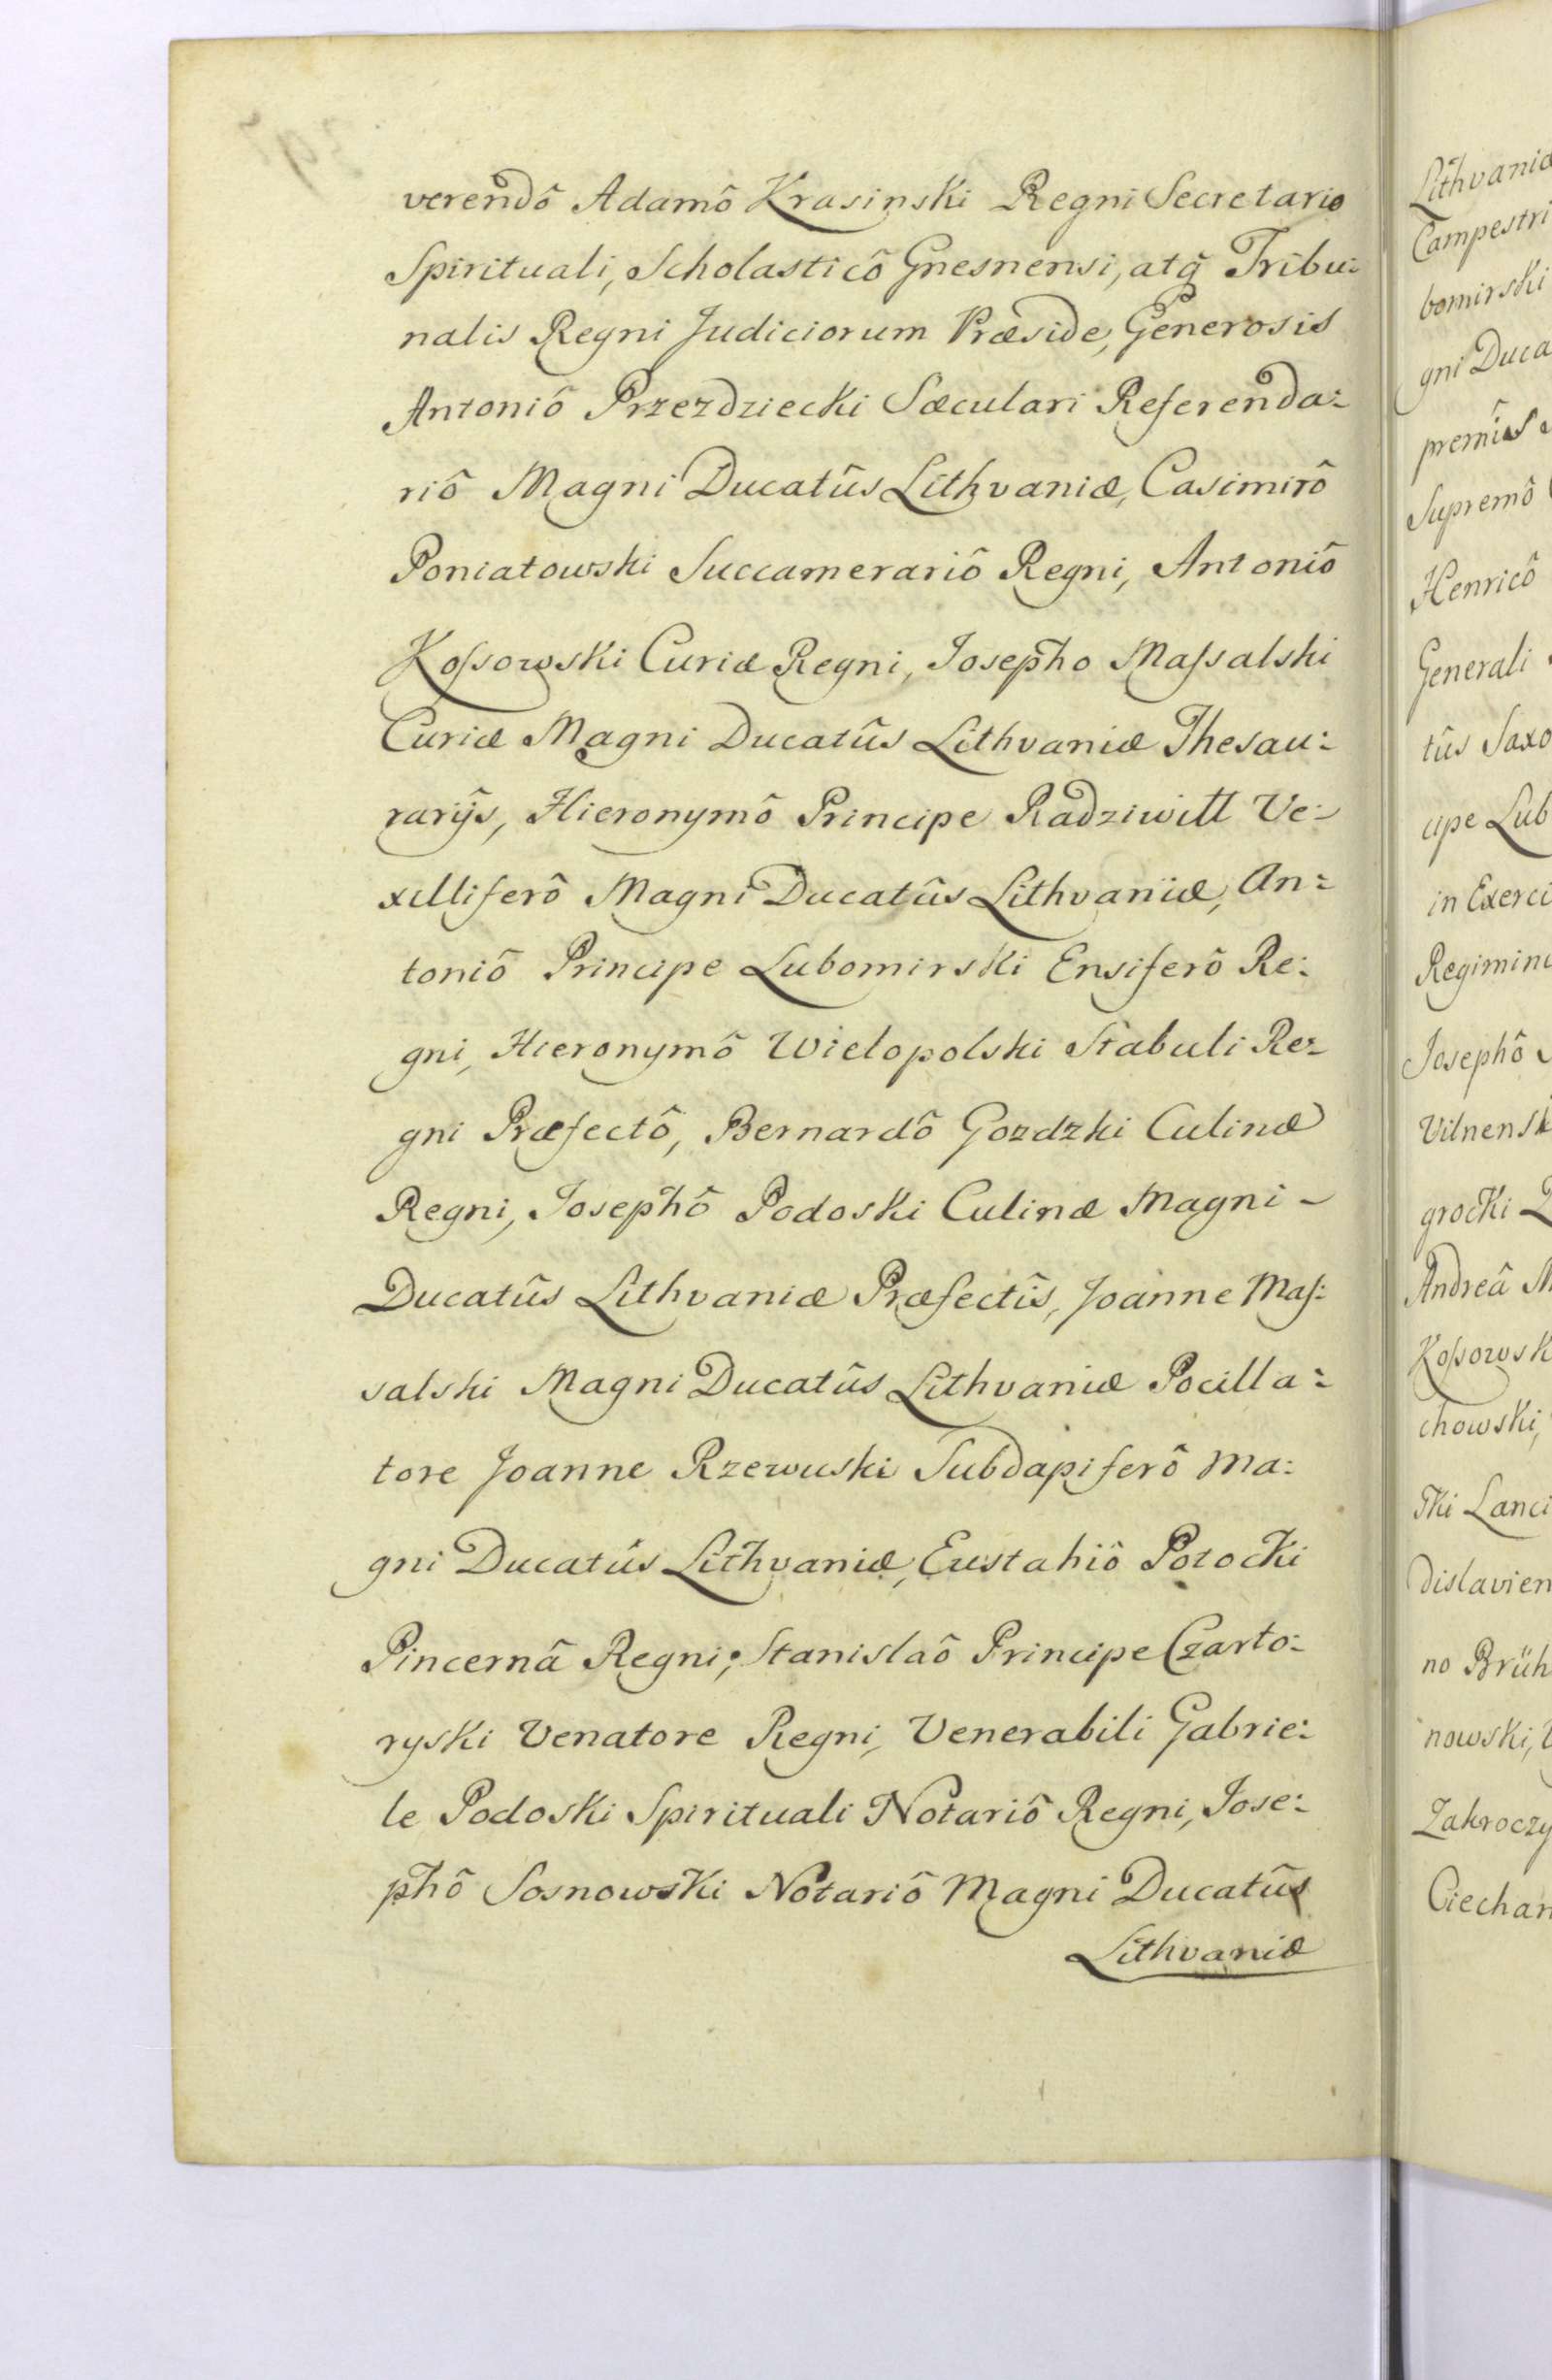 verendô Adamô Krasinski Regni Secretario
Spirituali, Scholasticô Gnesnensi, atq̃ Tribu:
nalis Regni Judiciorum Præside, Generosis
Antoniô Przezdziecki Sæculari Referenda:
riô Magni Ducatûs Lithvaniæ, Casimirô
Poniatowski Succamerariô Regni, Antoniô
Koſsowski Curiæ Regni, Josepho Maſsalski
Curiæ Magni Ducatûs Lithvaniæ Thesau:
rarijs, Hieronymô Principe Radziwill Ve:
xilliferô Magni Ducatûs Lithvaniæ, An:
toniô Principe Lubomirski Ensiferô Re:
gni, Hieronymô Wielopolski Stabuli Re:
gni Præfectô, Bernardô Gozdzki Culinæ
Regni, Josephô Podoski Culinæ Magni -
Ducatûs Lithvaniæ Præfectîs, Joanne Maſ:
salski Magni Ducatûs Lithvaniæ Pocilla:
tore Joanne Rzewuski Subdapiferô Ma:
gni Ducatûs Lithvaniæ, Eustahiô Potocki
Pincernâ Regni; Stanislaô Principe Czarto:
ryski Venatore Regni, Venerabili Gabrie:
le Podoski Spirituali Notariô Regni, Jose:
phô Sosnowski Notariô Magni Ducatûs
Lithvaniæ
Lithvaniæ
Campestri
bomirski
gni Duca
premîs
Supremô
Henricô
Generali
tûs Saxo
cipe Lub
in Exerci
Regimini
Josephô
Vilnensk
grocki
Andreâ
Koſsowsk
chowski,
ski Lanci
dislavien
no Brüh
nowski,
Zakroczy
Ciechan